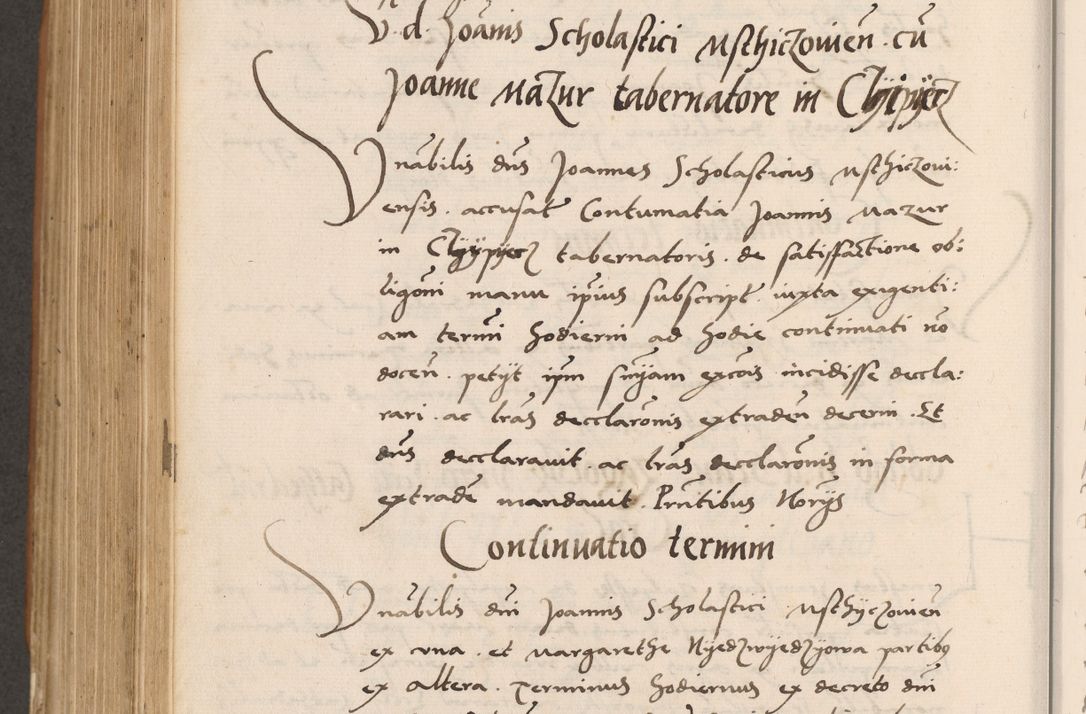 V. d. Joānis Scholastici Usthiczovień. cū
Joanne Mazur tabernatore in Clypyecz
Vnābilis dn̄s Joannes Scholasticus Usthiczovi:
ensis. accusat Contumatia Joannis Mazur
in Clypyecz tabernatoris. de satisfactione ob:
ligōni manu ipīus subscript. iuxta exigenti:
am termī hodierni ad hodie continuati nō
doceń. petyt ipm̄ sn̄yam excōis incidisse decla:
rari. ac lrās decclarōnis extradeń decerni. Et
dn̄s decclaravit. ac lrās decclarōnis in forma
extradē mandavit. Prn̄tibus Norys
Continuatio termini
Vnābilis dnī Joannis Scholastici Usthyczovień
ex una. et Margarethe Nyedzwyedzyowa partibus
ex altera. Terminus hodiernus ex decreto dnī